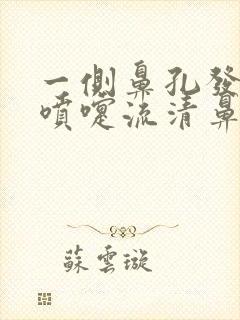 一側鼻孔發
噴嚏流清鼻
蘇雲璇